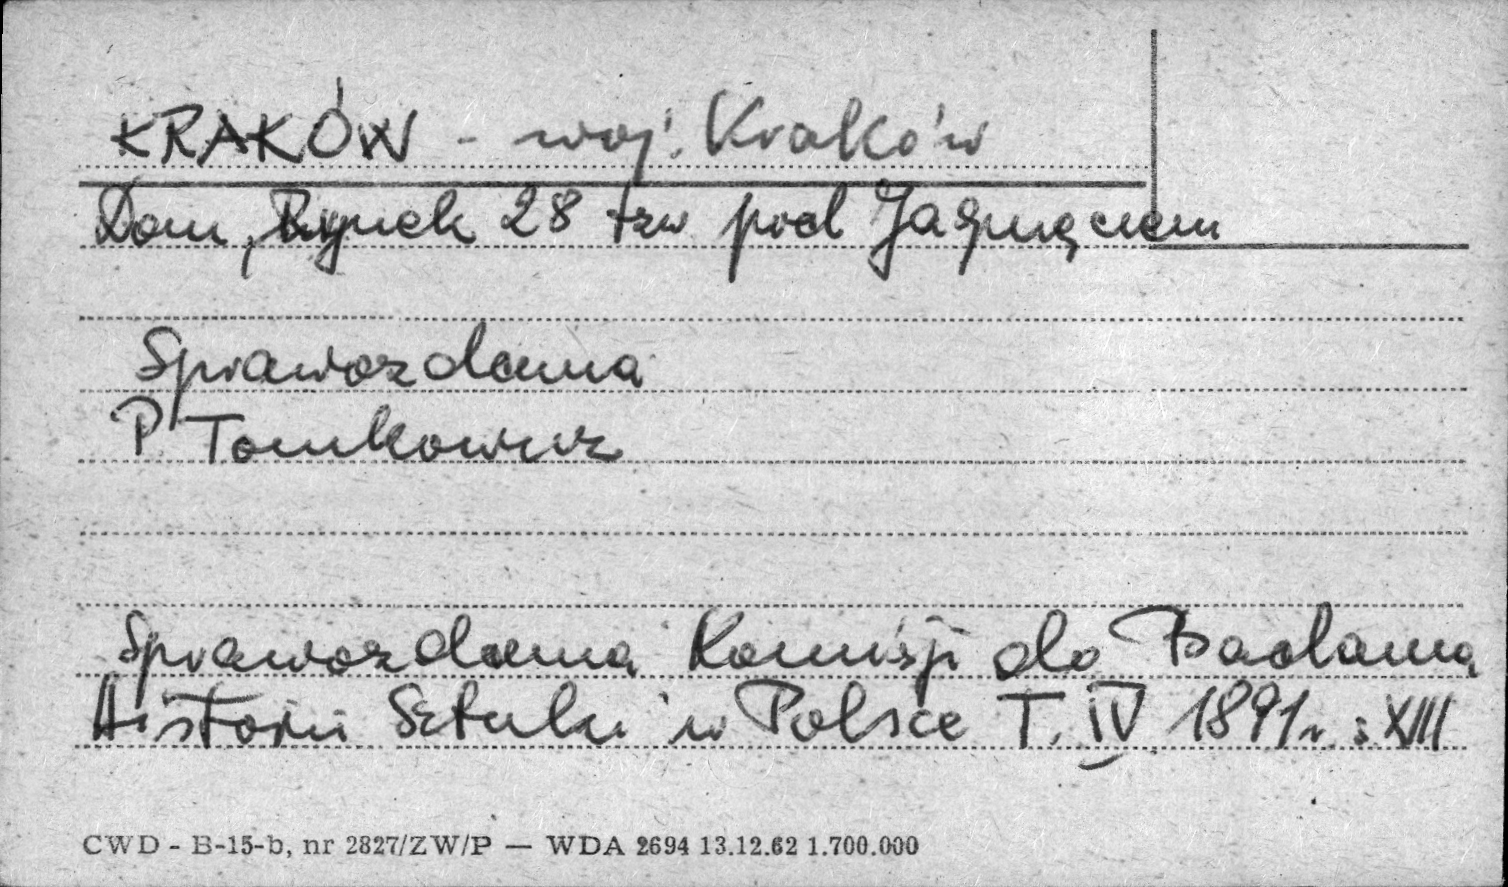 KRAKÓW - woj. Kraków
Dom, Rynek 28 tzw pod Jagnięciem
Sprawozdania
P. Tomkowicz
Sprawozdania Komisji do Badania
Historii Sztuki w Polsce T. IV 1891r s. XIII
CWD - B-15-b, nr 2827/ZW/P — WDA 2694 13.12.62 1.700.000